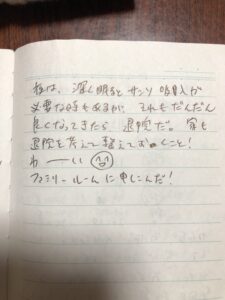 私は、深く眠るとサンソ吸入が
必要な時もあるが、それもだんだん
良くなってきたら退院だ。家も
退院を考えて整えておくこと!
わーーい
ファミリールームに申しこんだ!